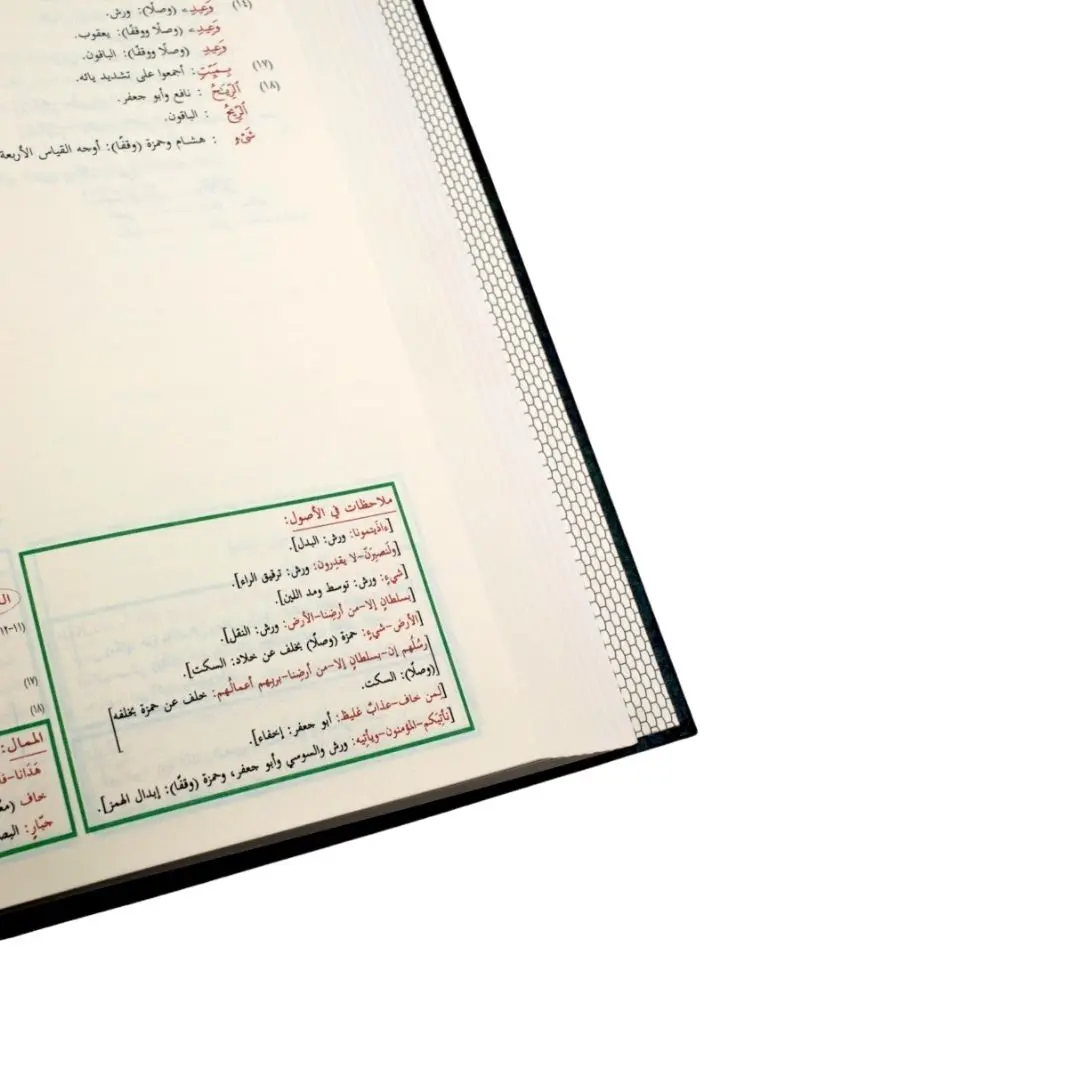 (١٤) وَعِيدِۦ (وصلًا): ورش.
وَعِيدِۦ (وصلًا ووقفًا): يعقوب.
وَعِيدِ (وصلًا ووقفًا): الباقون.
(١٧) بِمَيِّتٍ: أجمعوا على تشديد يائه.
(١٨) ٱلرِّيَٰحُ : نافع وأبو جعفر.
ٱلرِّيحُ : الباقون.
شَىْءٍ : هشام وحمزة (وقفًا): أوجه القياس الأربعة
ملاحظات في الأصول:
[ءاذيتمونا: ورش: البدل].
[ولنصبرَنّ-لا يقدِرون: ورش: ترقيق الراء].
[شيءٍ: ورش: توسط ومد اللين].
[بسلطانٍ إلا-من أرضِنا-الأرض: ورش: النقل].
[الأرض-شيءٍ: حمزة (وصلًا) بخلف عن خلاد: السكت].
[رسُلُهم إن-بسلطانٍ إلا-من أرضِنا-بربهم أعمالُهم: خلف عن حمزة بخلفه
(وصلًا): السكت.]
[لمن خاف-عذابٌ غليظ: أبو جعفر: إخفاء].
[نأتيَكم-المؤمنون-ويأتيه: ورش والسوسي وأبو جعفر، وحمزة (وقفًا): إبدال الهمز].
١١-١٢
(١٧)
(١٨)
الممال:
هَدَانا
خاف
جبّارٍ: